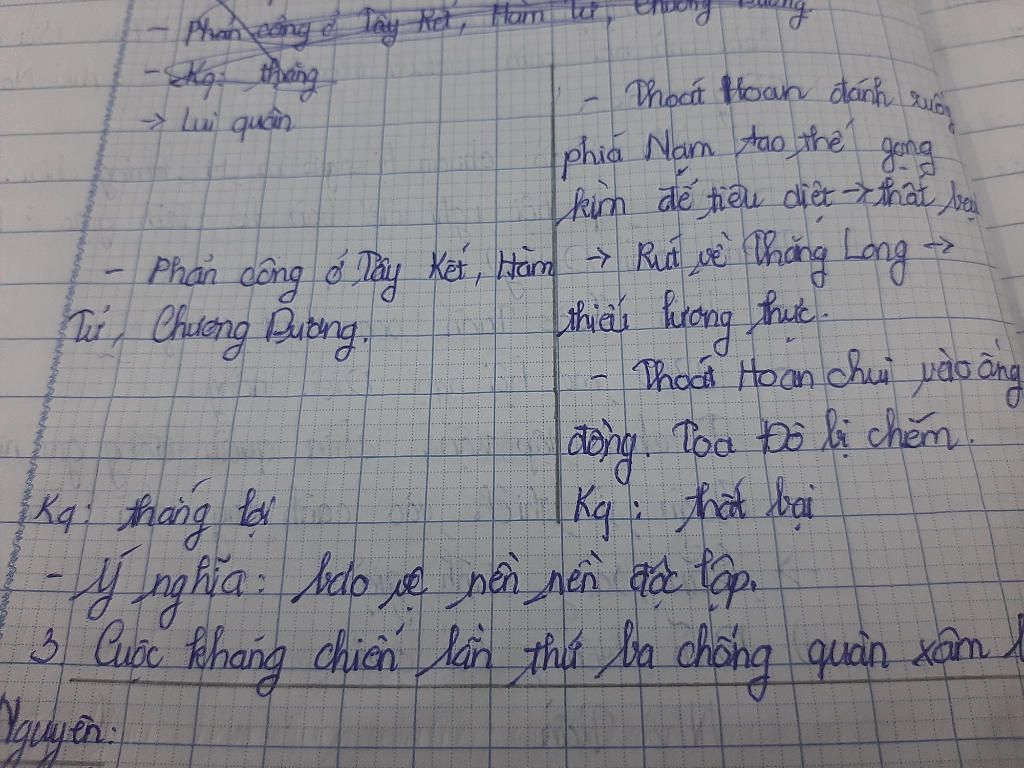 - Phản công ở Tây Kết, Hàm Tử, Chương Dương
- Kq: thắng
→ lui quân
- Phản công ở Tây Kết, Hàm
Tử, Chương Dương.
Kq: thắng lợi
- Thoát Hoan đánh xuống
phía Nam tạo thế gọng
kìm để tiêu diệt → thất bại
→ Rút về Thăng Long →
thiếu lương thực.
- Thoát Hoan chui vào ống
đồng. Toa Đô bị chém.
Kq: thất bại
- Ý nghĩa: bảo vệ nền nền độc lập.
3. Cuộc kháng chiến lần thứ ba chống quân xâm
Nguyên: